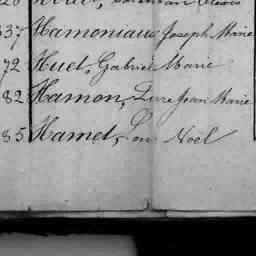 337 Hamoniaux Joseph Marie
72 Huet, Gabriel Marie
82 Hamon, Pierre Jean Marie
85 Hamet, Noël